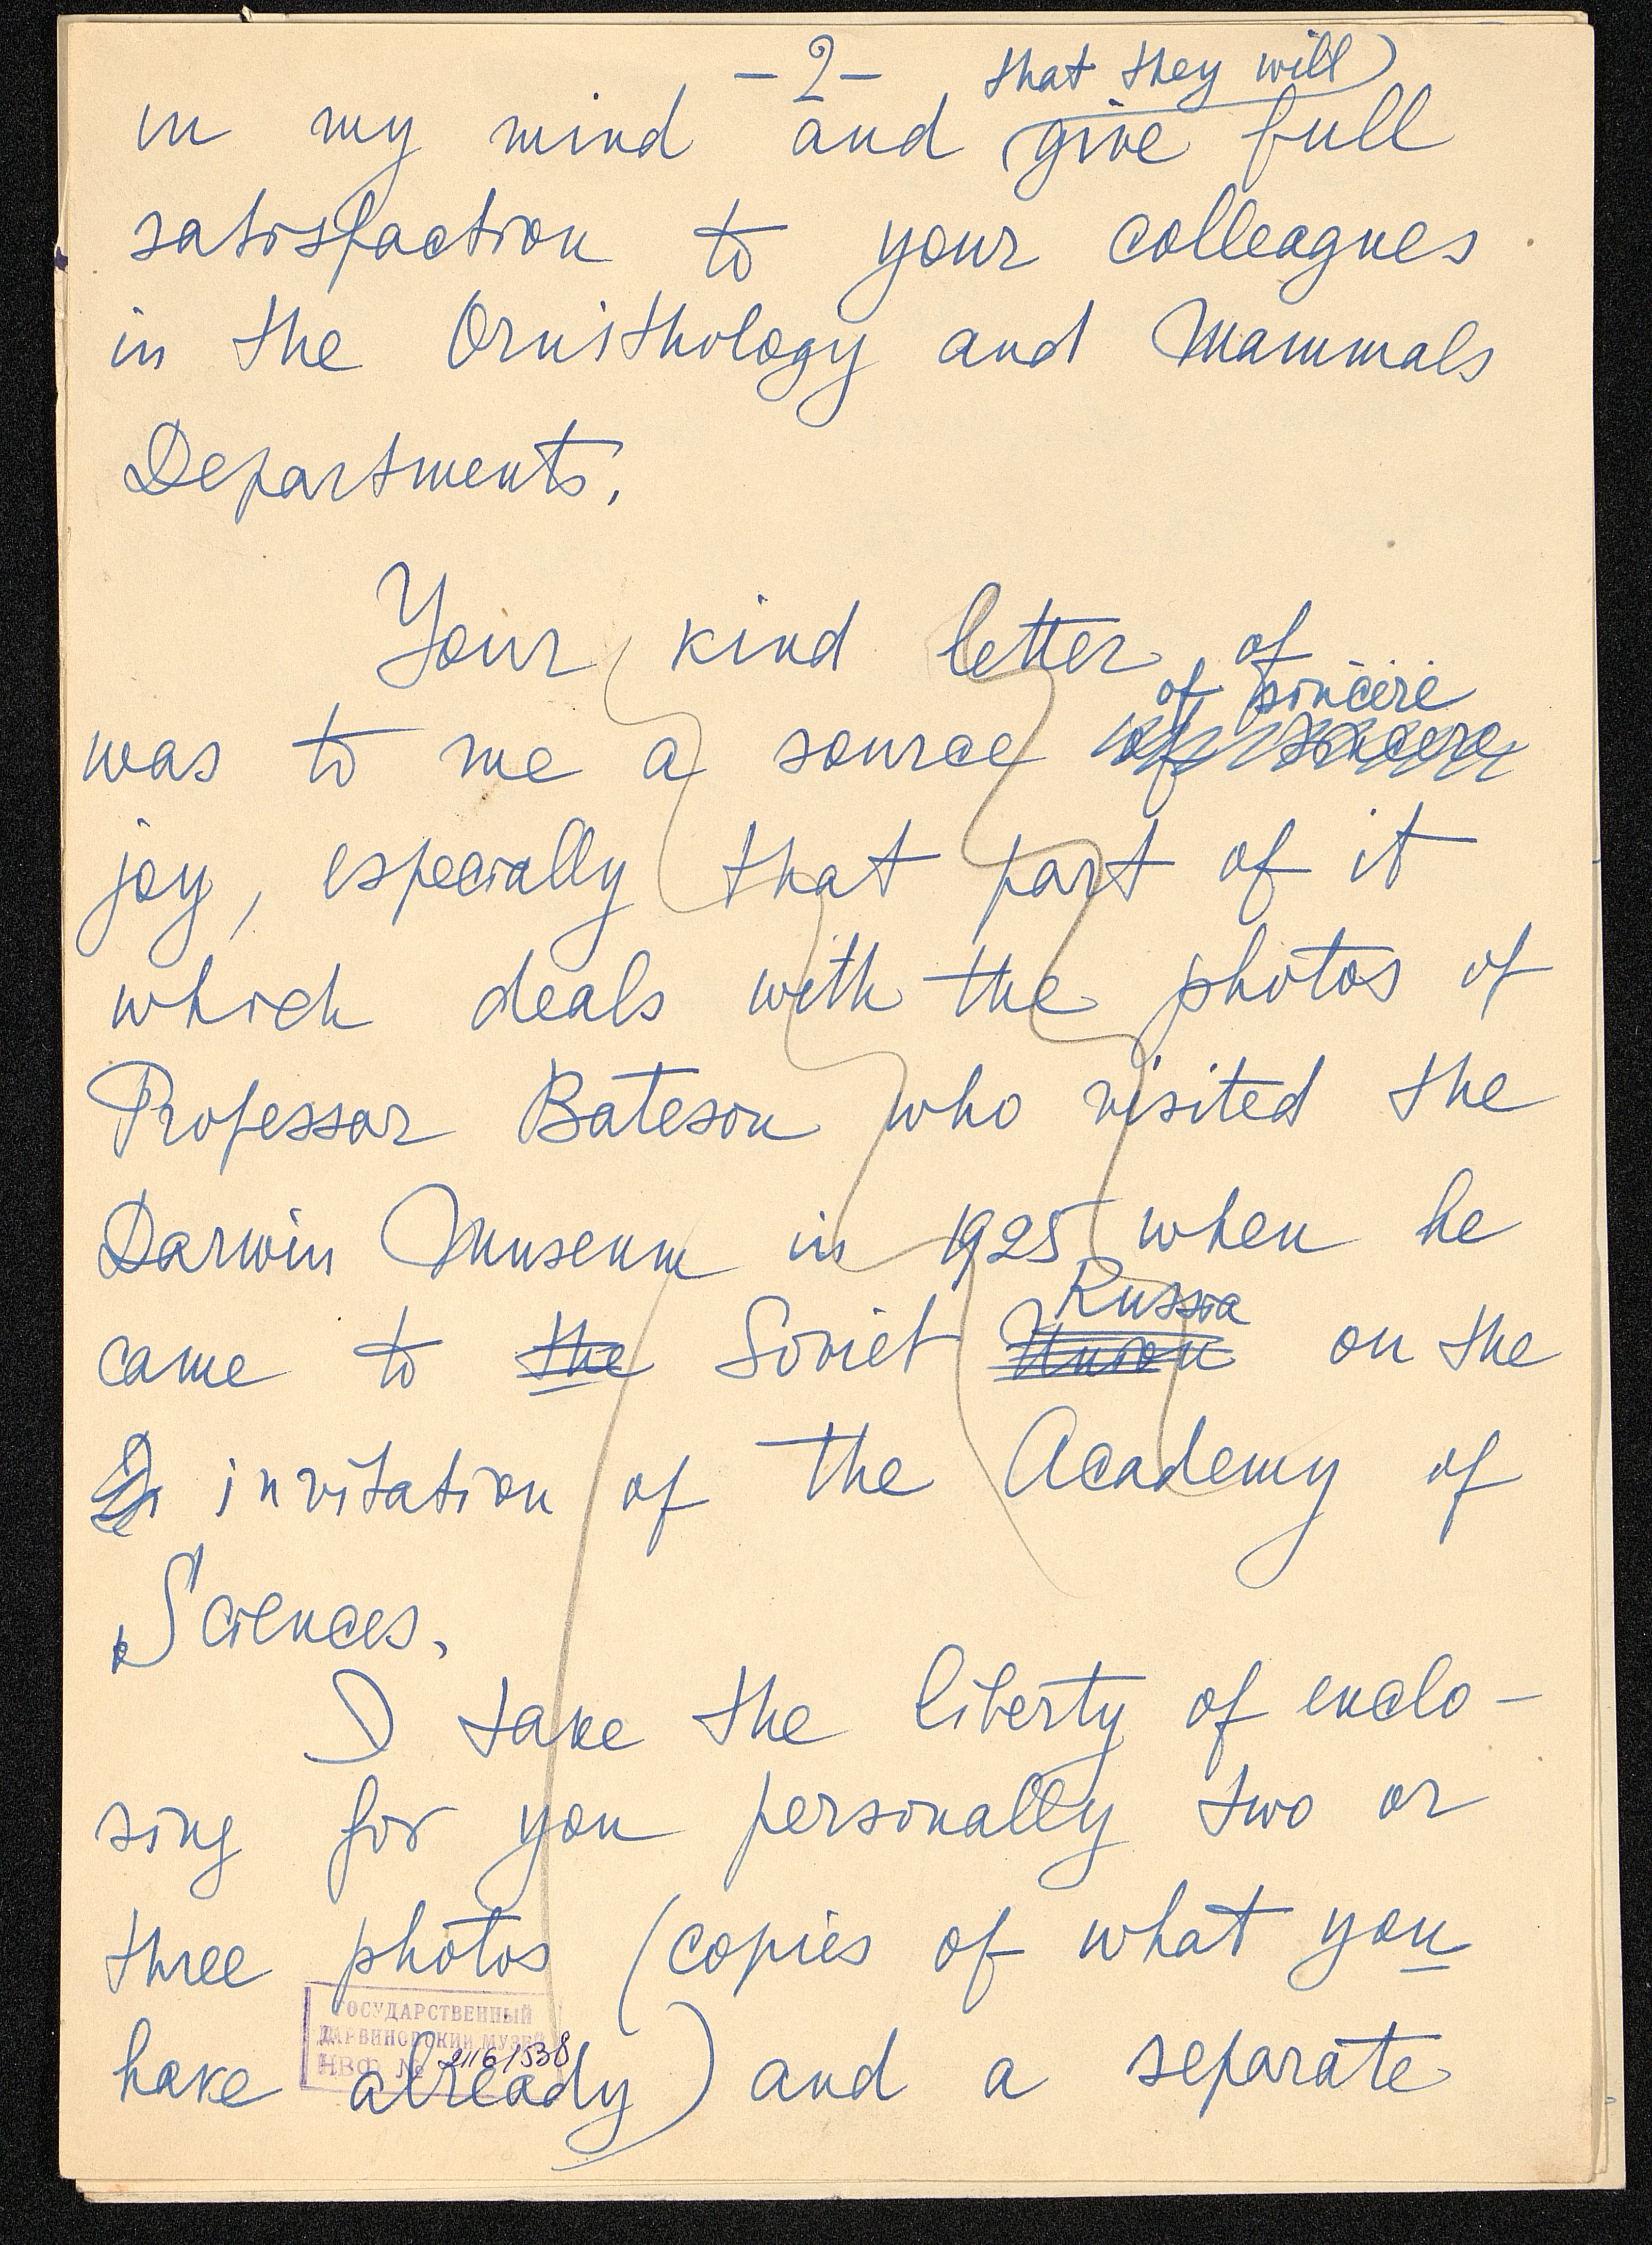 -2-
that they will
in my mind and give full
satisfaction to your colleagues
in the Ornithology and Mammals
Departments.
Your kind letter of
of sincere
was to me a source of sincere
joy, especially that part of it
which deals with the photos of
Professor Bateson who visited the
Darwin Museum in 1925 when he
Russia
came to the Soviet Union on the
invitation of the Academy of
Sciences.
I take the liberty of enclo-
sing for you personally two or
three photos (copies of what you
have already) and a separate
ГОСУДАРСТВЕННЫЙ
ДАРВИНОВСКИЙ МУЗЕЙ
НВФ № 2116/538